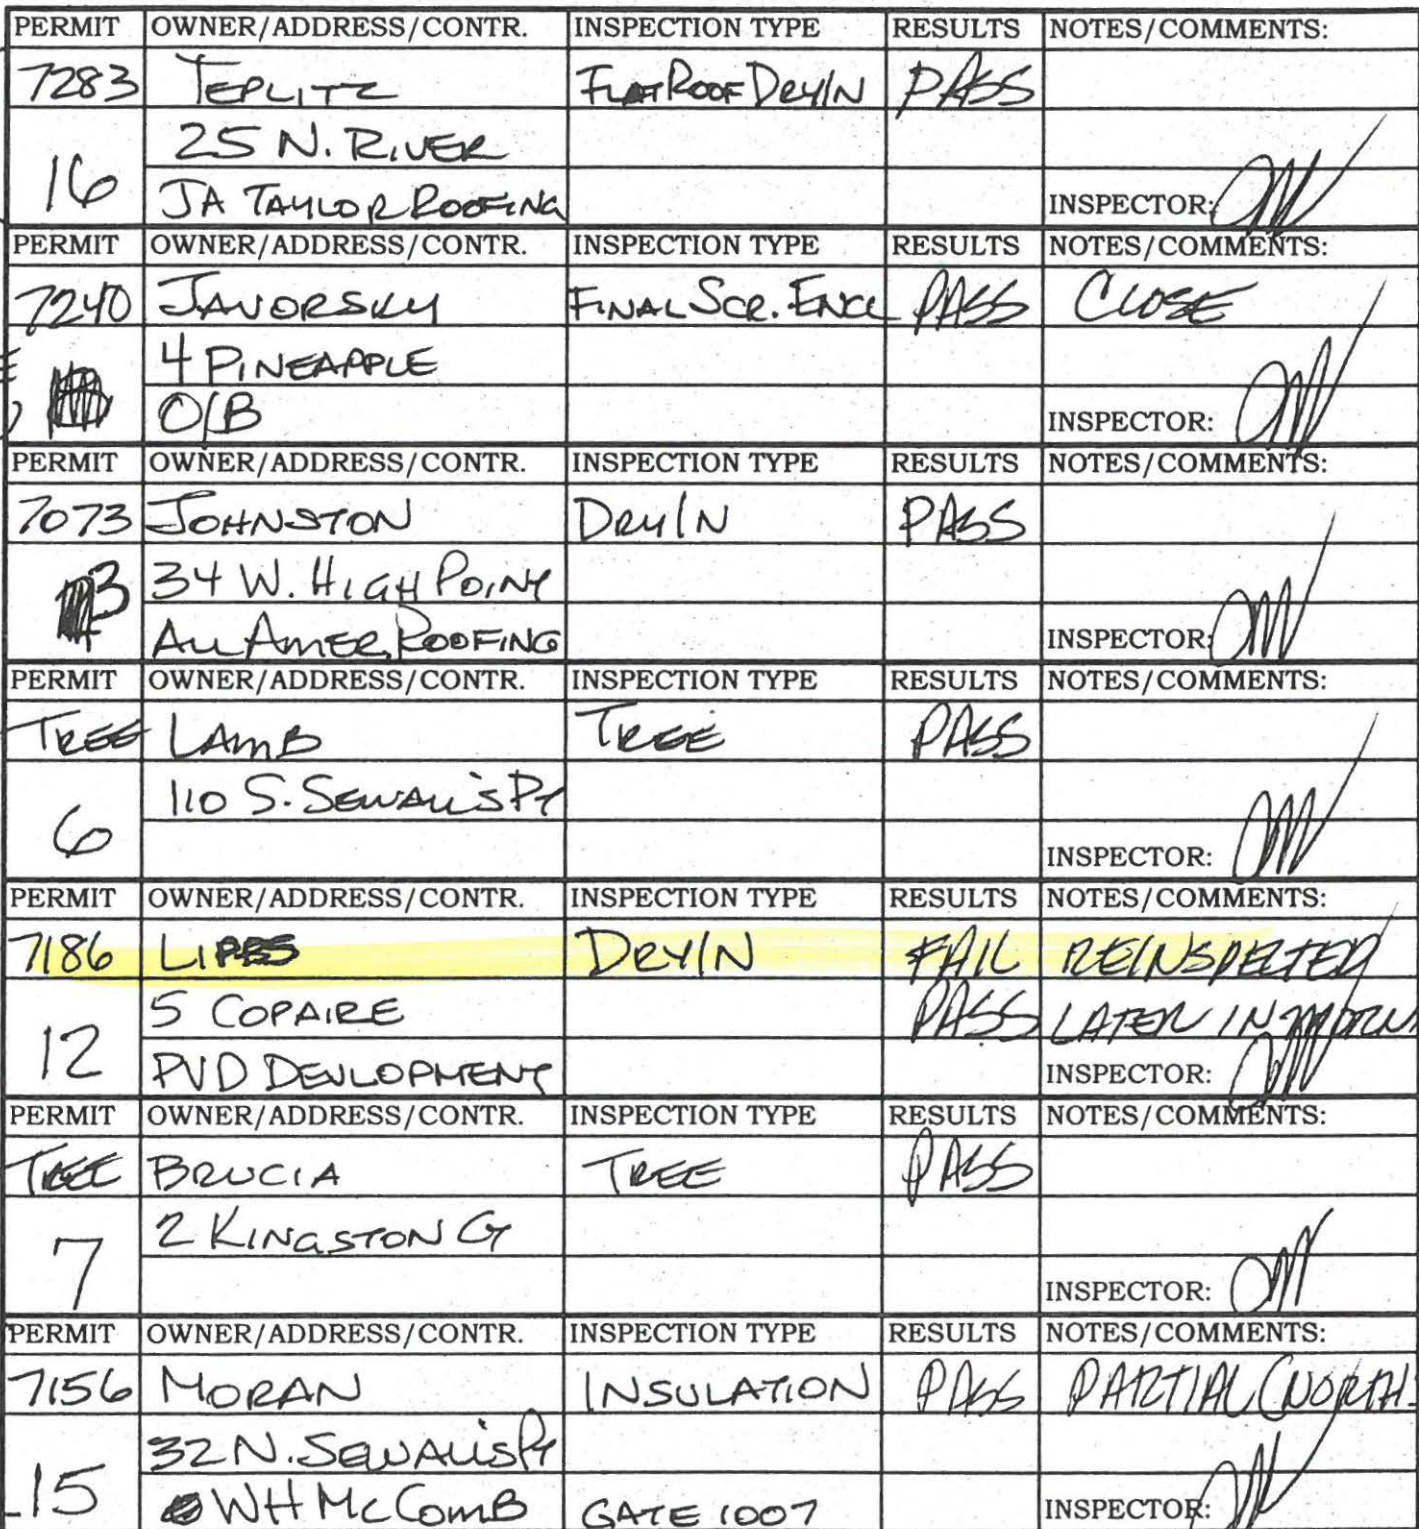 PERMIT OWNER/ADDRESS/CONTR. INSPECTION TYPE RESULTS NOTES/COMMENTS:
7283 TEPLITZ FLAT ROOF DRY/IN PASS
25 N. RIVER
16 JA TAYLOR ROOFING INSPECTOR:
PERMIT OWNER/ADDRESS/CONTR. INSPECTION TYPE RESULTS NOTES/COMMENTS:
7240 JAVORSKY FINAL SCR. ENCL PASS CLOSE
4 PINEAPPLE
O/B INSPECTOR:
PERMIT OWNER/ADDRESS/CONTR. INSPECTION TYPE RESULTS NOTES/COMMENTS:
7073 JOHNSTON DRY/IN PASS
3 34 W. HIGH POINT
ALL AMER. ROOFING INSPECTOR:
PERMIT OWNER/ADDRESS/CONTR. INSPECTION TYPE RESULTS NOTES/COMMENTS:
TREE LAMB TREE PASS
110 S. SEWALL'S PT
6 INSPECTOR:
PERMIT OWNER/ADDRESS/CONTR. INSPECTION TYPE RESULTS NOTES/COMMENTS:
7186 DRY/IN FAIL REINSPECTED
5 COPAIRE PASS LATER IN MORN
12 PVD DEVLOPMENT INSPECTOR:
PERMIT OWNER/ADDRESS/CONTR. INSPECTION TYPE RESULTS NOTES/COMMENTS:
TREE BRUCIA TREE PASS
2 KINGSTON CT
7 INSPECTOR:
PERMIT OWNER/ADDRESS/CONTR. INSPECTION TYPE RESULTS NOTES/COMMENTS:
7156 MORAN INSULATION PASS PARTIAL (NORTH
32 N. SEWALL'S PT
15 WH MCCOMB GATE 1007 INSPECTOR: